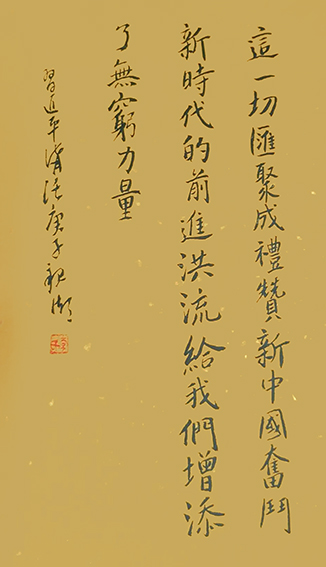 這一切匯聚成禮贊新中國奮鬥
新時代的前進洪流給我們增添
了無窮力量
習近平講話庚子